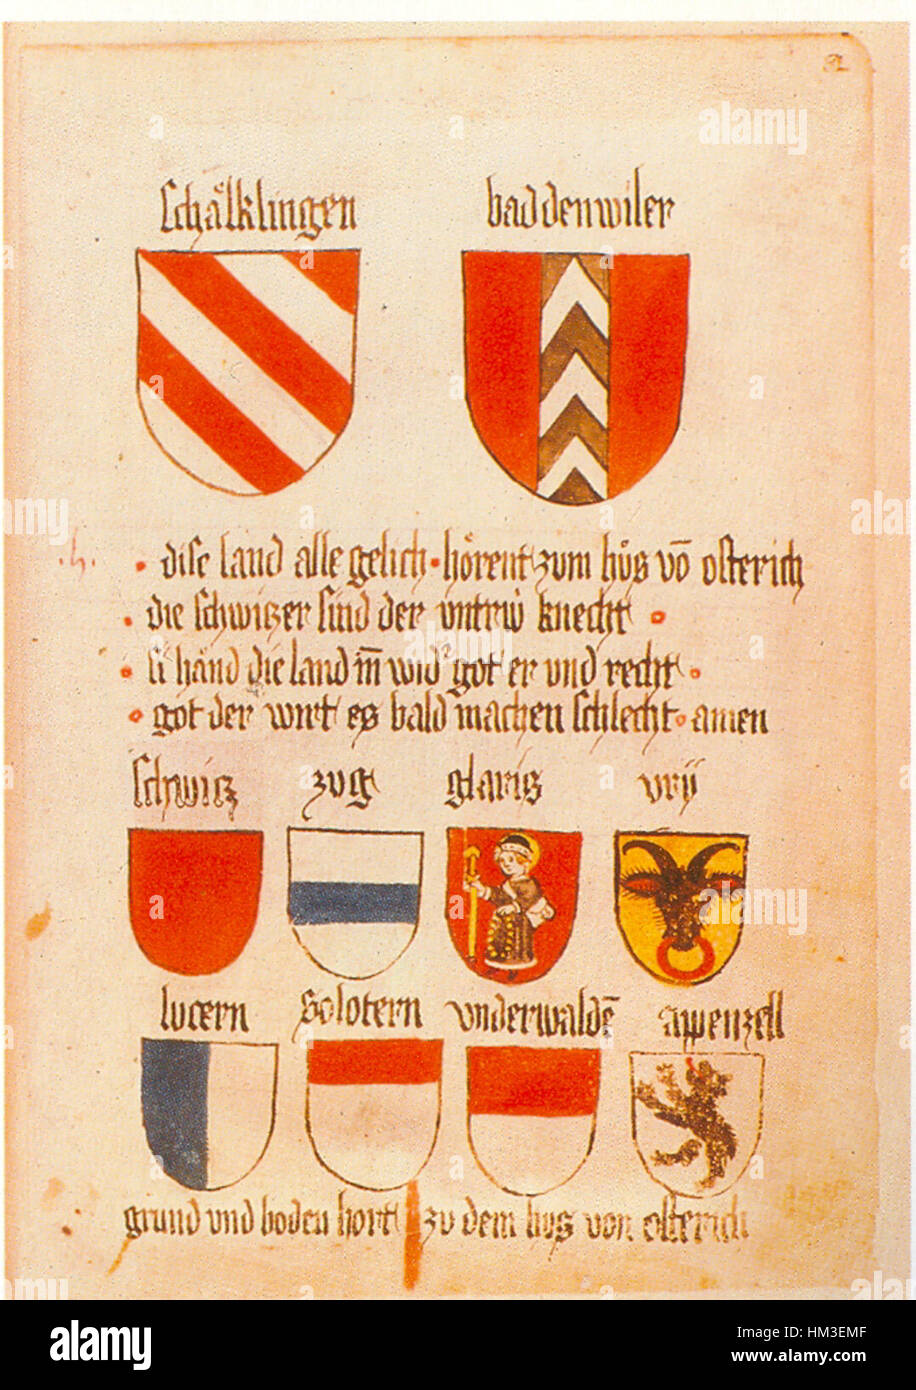 schälklingen baddenwiler
.h. · dise land alle gelich · hörent zum hůs vō osterich
· die schwitzer sind der vntrü knecht ·
· si händ die land wid got er und recht ·
· got der wirt es bald machen schlecht · amen
schwitz zug glaris vrij
lucern solotern vnderwaldē appenzell
grund vnd boden hort zu dem hus von osterich
alamy
www.alamy.com
Image ID: HM3EMF